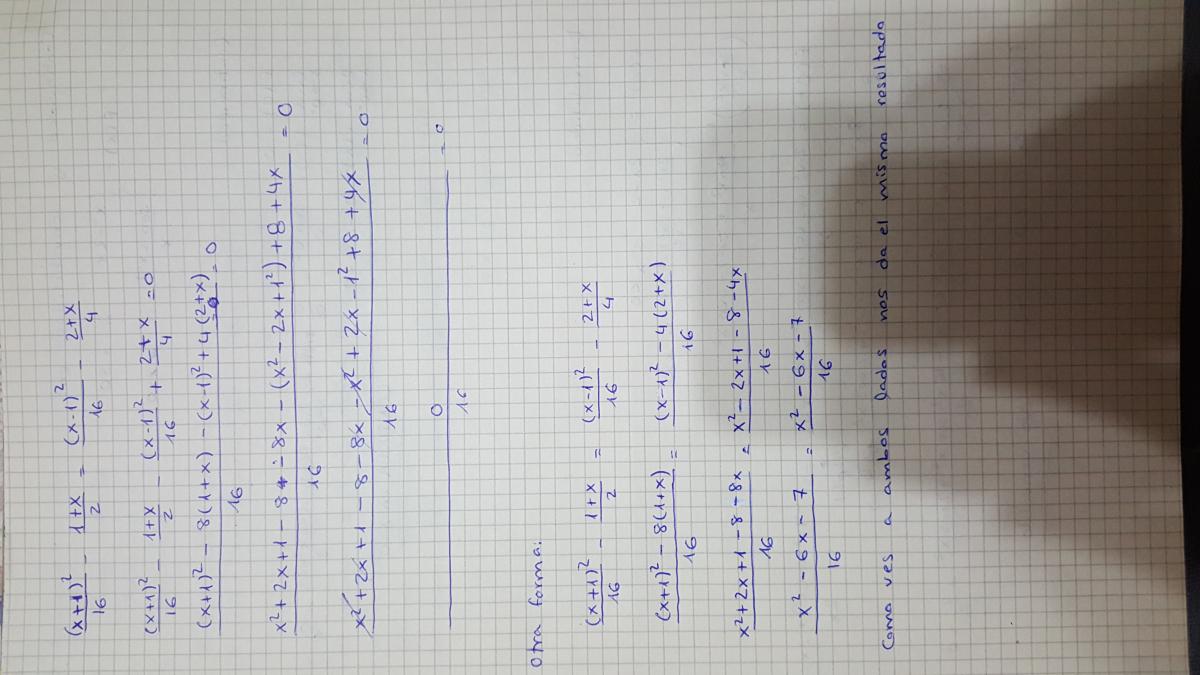 (x+1)²/16 - 1+x/2 = (x-1)²/16 - 2+x/4
(x+1)²/16 - 1+x/2 - (x-1)²/16 + 2+x/4 = 0
(x+1)² - 8(1+x) - (x-1)² + 4(2+x)/16 = 0
x² + 2x + 1 - 8 - 8x - (x² - 2x + 1²) + 8 + 4x/16 = 0
x² + 2x + 1 - 8 - 8x - x² + 2x - 1² + 8 + 4x/16 = 0
0/16 = 0
Otra forma:
(x+1)²/16 - 1+x/2 = (x-1)²/16 - 2+x/4
(x+1)² - 8(1+x)/16 = (x-1)² - 4(2+x)/16
x² + 2x + 1 - 8 - 8x/16 = x² - 2x + 1 - 8 - 4x/16
x² - 6x - 7/16 = x² - 6x - 7/16
Como ves a ambos lados nos da el mismo resultado